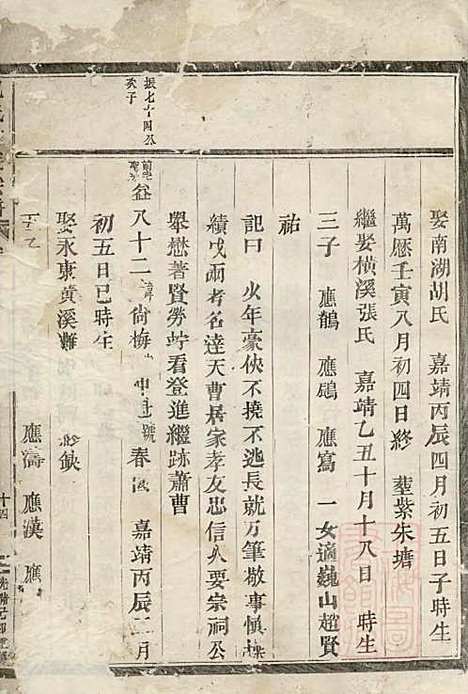 娶南湖胡氏 嘉靖丙辰四月初五日子時生
萬厯壬寅八月初四日終 塟紫朱塘
繼娶橫溪張氏 嘉靖乙丑十月十八日 時生
三子 應鶴 應鵰 應寫 一女適巍山趙賢
祐
記曰 火年豪俠不撓不逃長就刀筆敬事慎
績戊兩者名達天曹居家孝友忠信人要宗祠公
舉懋著賢勞竚看登進繼跡蕭曹
振七十四公
次子
益八十二 尚梅 號春 嘉靖丙辰二月
初五日巳時生
娶永康黄溪 缺
子 應濤 應漢 應
十四